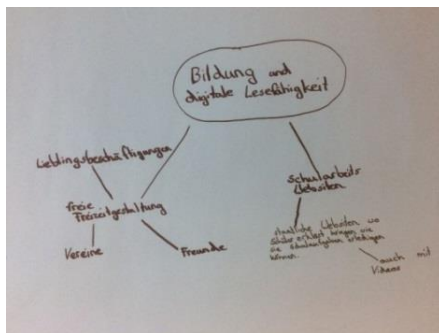 Bildung and
digitale Lesefähigkeit
Lieblingsbeschäftigungen
freie
Freizeitgestaltung
Vereine
Freunde
Schularbeits
Websiten
staatliche Websiten wo
Schüler erklärt kriegen wie
sie Schulaufgaben erledigen
können.
auch mit
Videos